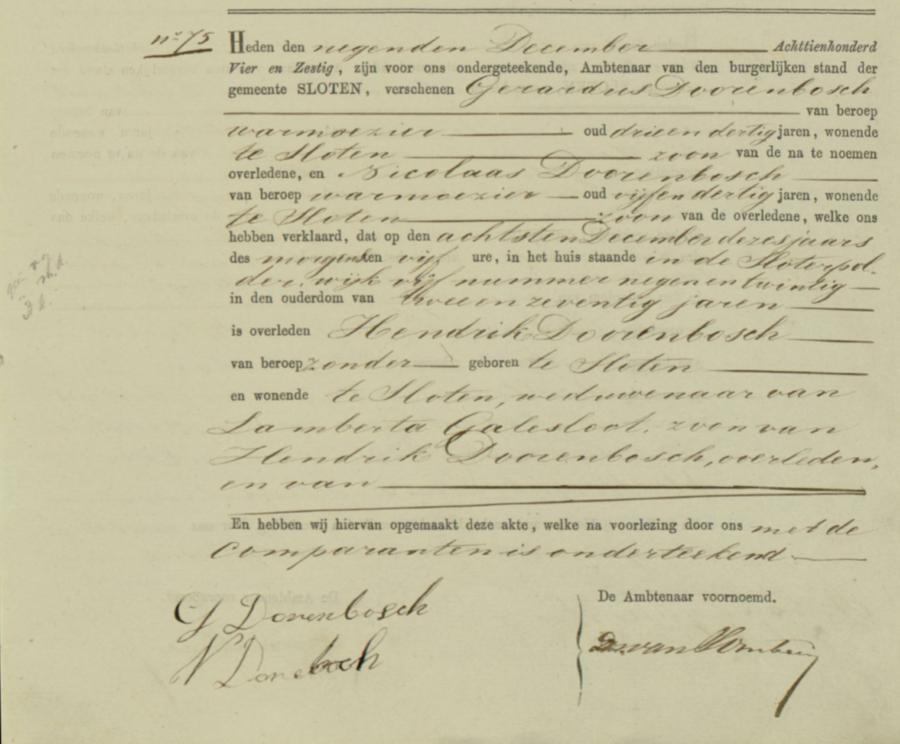 no 75 Heden den negenden December Achttienhonderd
Vier en Zestig, zijn voor ons ondergeteekende, Ambtenaar van den burgerlijken stand der
gemeente SLOTEN, verschenen Gerardus Doorenbosch
van beroep
warmoezier oud drieendertig jaren, wonende
te Sloten zoon van de na te noemen
overledene, en Nicolaas Doorenbosch
van beroep warmoezier oud vijfendertig jaren, wonende
te Sloten zoon van de overledene, welke ons
hebben verklaard, dat op den achtsten December dezes jaars
des morgens ten vijf ure, in het huis staande in de Sloterpol-
der, wijk vijf nummer negenentwintig
in den ouderdom van tweeenzeventig jaren
is overleden Hendrik Doorenbosch
van beroep zonder geboren te Sloten
en wonende te Sloten, weduwenaar van
Lamberta Galesloot, zoon van
Hendrik Doorenbosch, overleden,
en van
En hebben wij hiervan opgemaakt deze akte, welke na voorlezing door ons met de
comparanten is onderteekend
De Ambtenaar voornoemd.
G Dorenbosch
N Dorebosch